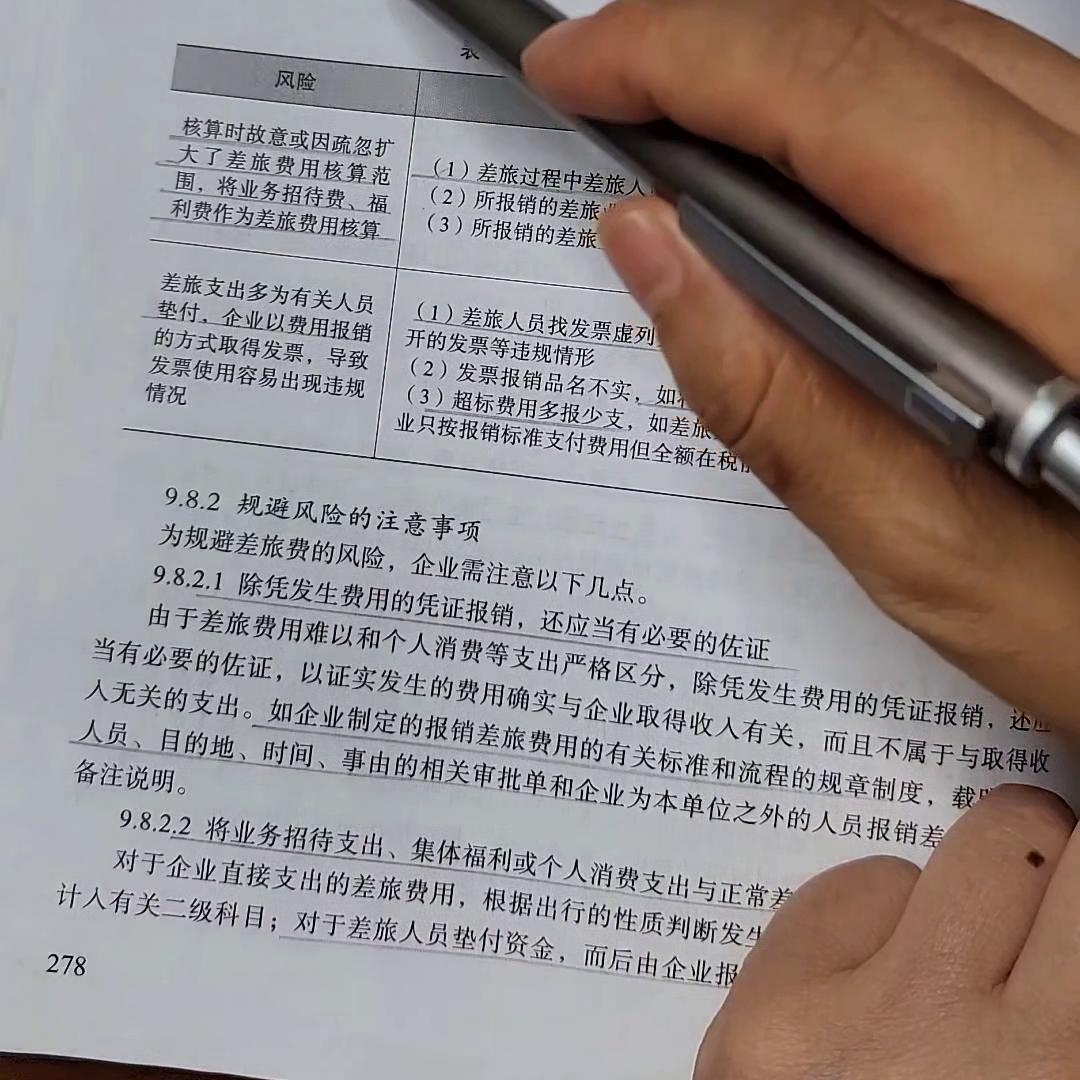 表
风险
核算时故意或因疏忽扩
大了差旅费用核算范
围，将业务招待费、福
利费作为差旅费用核算
（1）差旅过程中差旅人
（2）所报销的差旅
（3）所报销的差旅
差旅支出多为有关人员
垫付，企业以费用报销
的方式取得发票，导致
发票使用容易出现违规
情况
（1）差旅人员找发票虚列
开的发票等违规情形
（2）发票报销品名不实，如
（3）超标费用多报少支，如差旅
业只按报销标准支付费用但全额在税前
9.8.2 规避风险的注意事项
为规避差旅费的风险，企业需注意以下几点。
9.8.2.1 除凭发生费用的凭证报销，还应当有必要的佐证
由于差旅费用难以和个人消费等支出严格区分，除凭发生费用的凭证报销，还应
当有必要的佐证，以证实发生的费用确实与企业取得收入有关，而且不属于与取得收
入无关的支出。如企业制定的报销差旅费用的有关标准和流程的规章制度，载
人员、目的地、时间、事由的相关审批单和企业为本单位之外的人员报销差
备注说明。
9.8.2.2 将业务招待支出、集体福利或个人消费支出与正常差
对于企业直接支出的差旅费用，根据出行的性质判断发生
计入有关二级科目；对于差旅人员垫付资金，而后由企业报
278